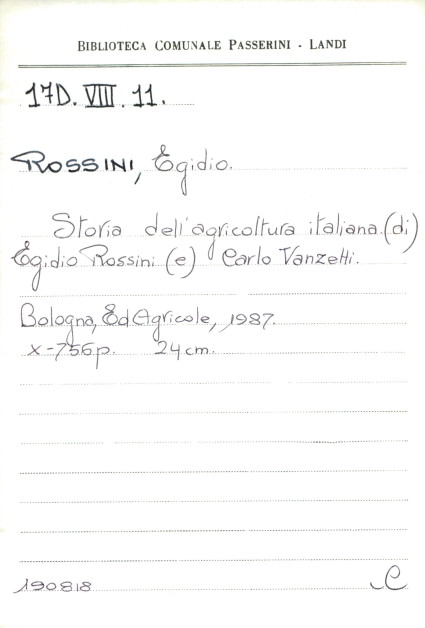 BIBLIOTECA COMUNALE PASSERINI - LANDI
17D. VIII. 11.
ROSSINI, Egidio.
Storia dell'agricoltura italiana. (di)
Egidio Rossini (e) Carlo Vanzetti.
Bologna, Ed Agricole, 1987.
X-756p. 24cm.
190818 C